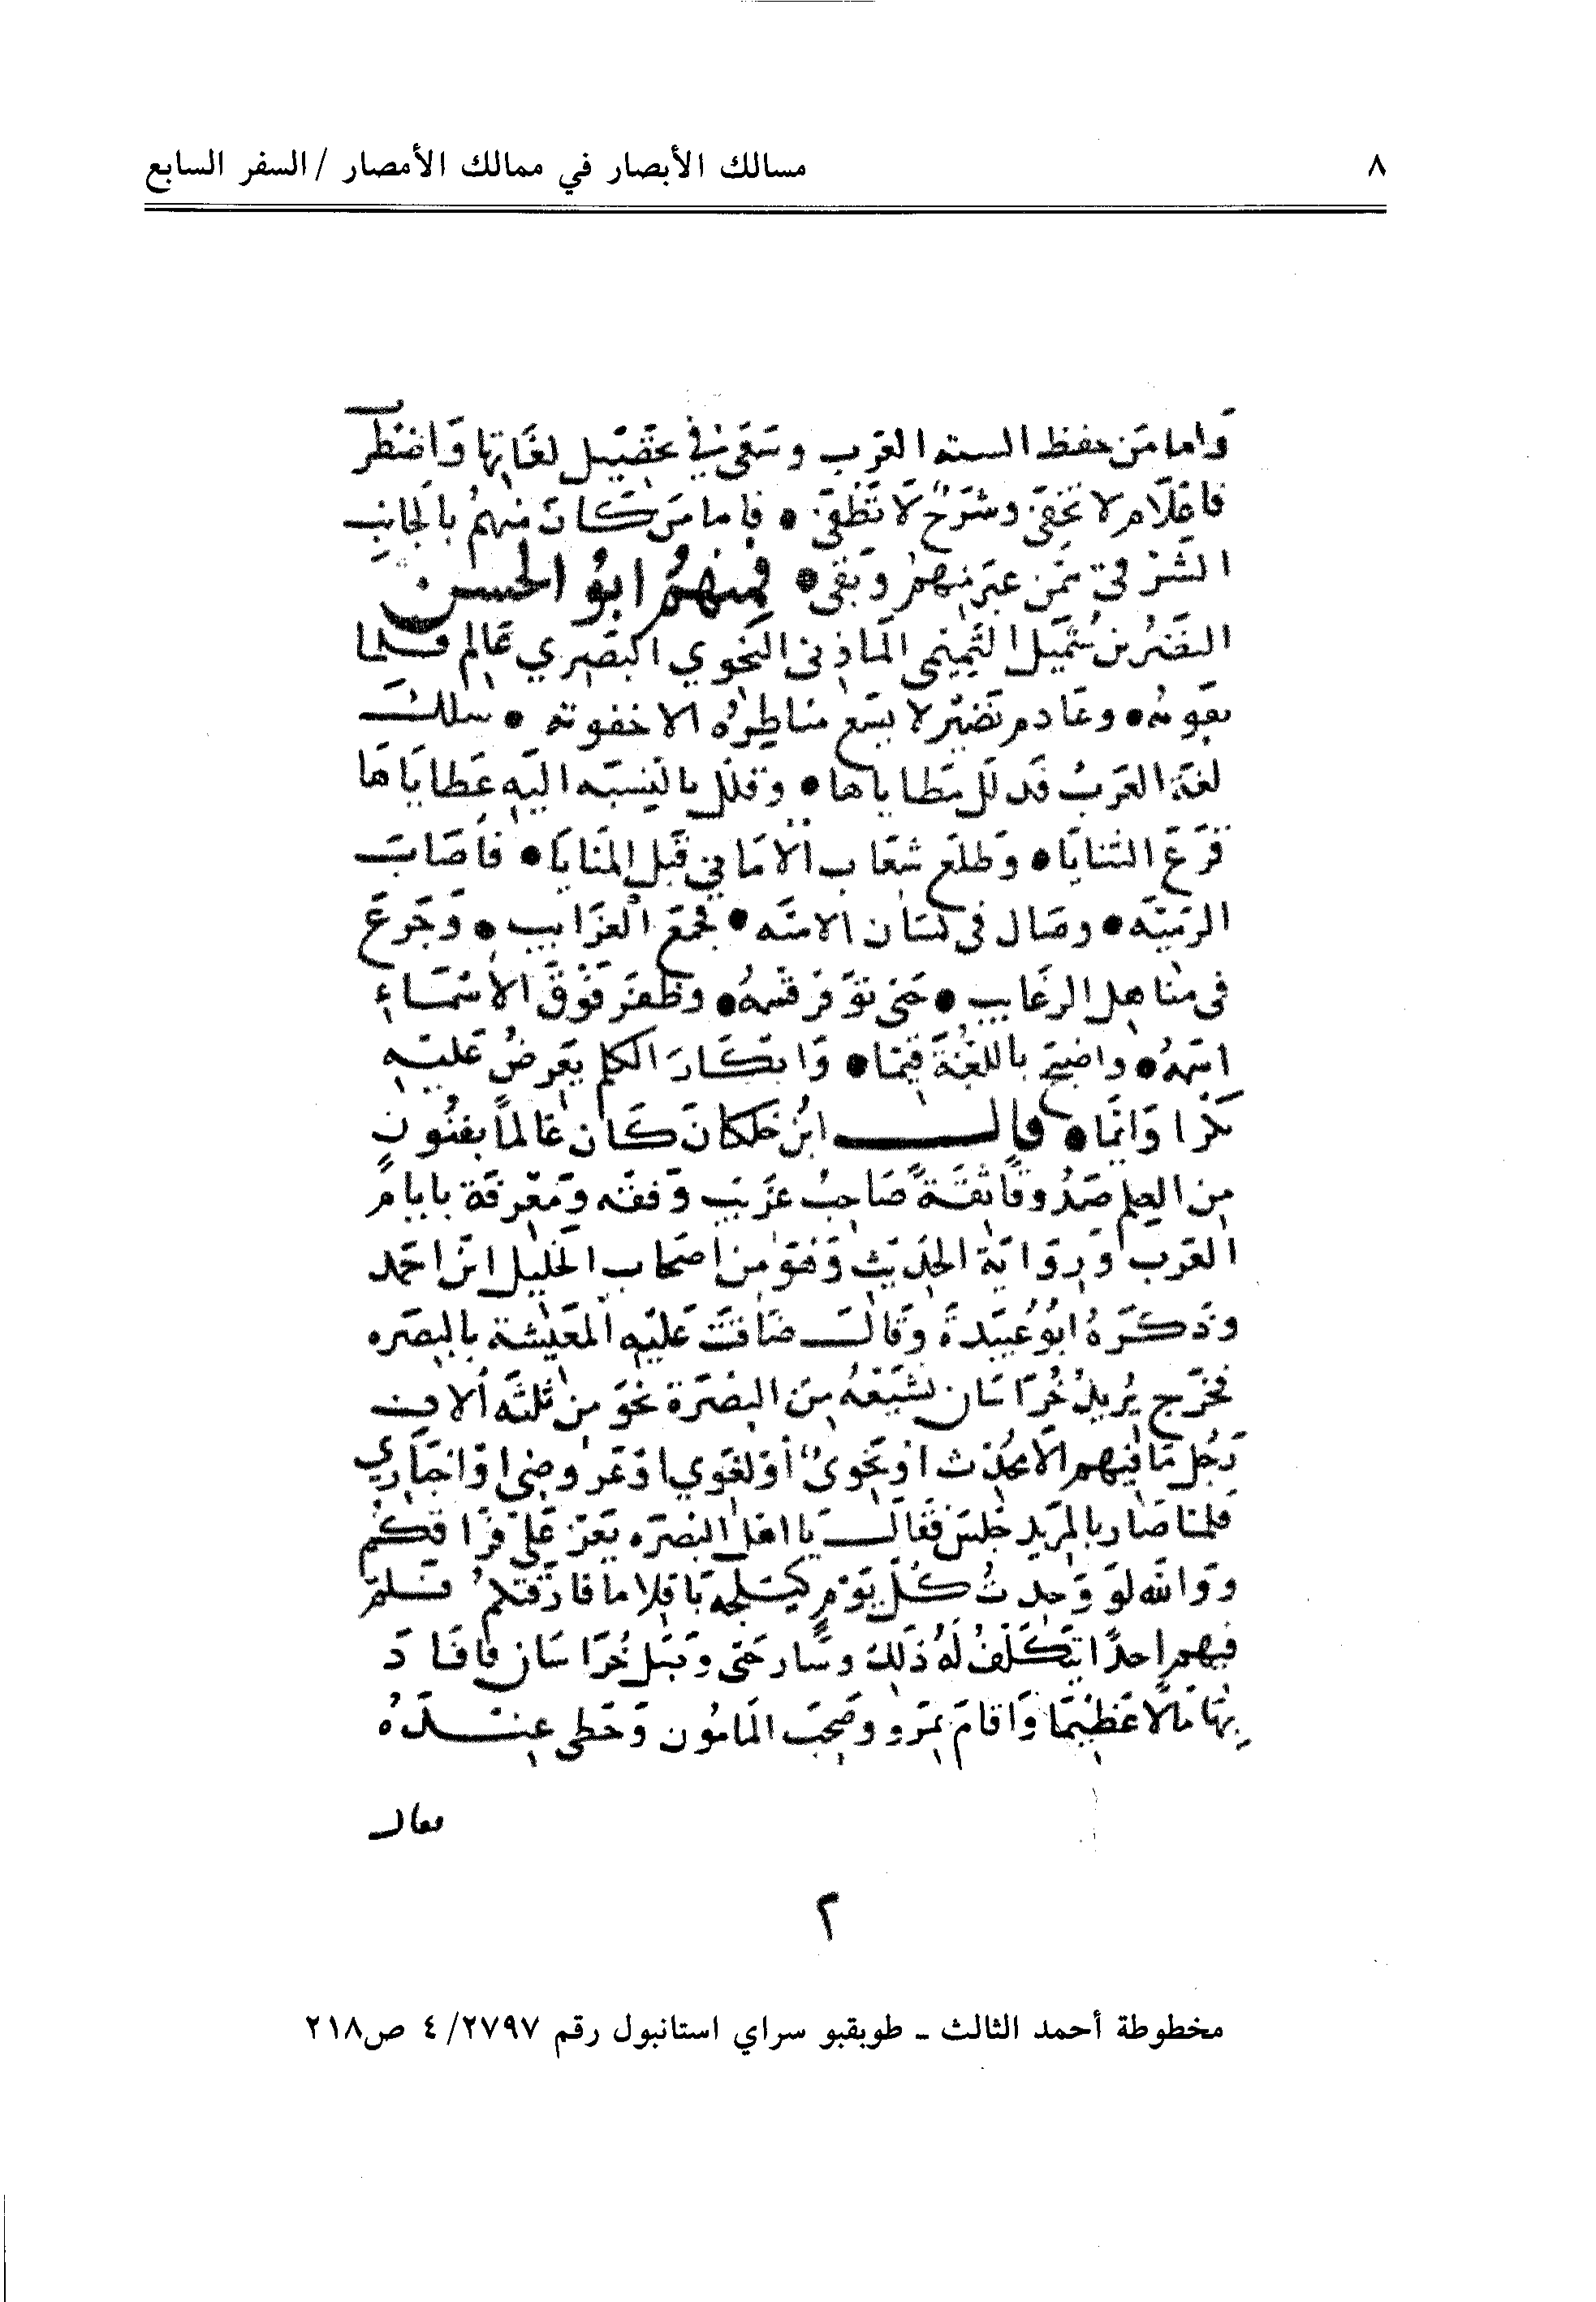 ٨
مسالك الأبصار في ممالك الأمصار / السفر السابع
وَاما مَن حفظ السنه العَرب وسَعَى في تحصيل لغاتها وَاضطر
فاعْلَام لا تخفَى وشرحٌ لَا تطفى • فاما مَن كَانَ منهمْ بالجانب
الشرقي ممَن عبَر منهمْ وبَقى • فمنهمُ ابوُ الحسن
النضر بن شميل التميمى المازنى النحوي البصري عَالم فلما
يفوته • وعَادم نَضير لا يسَع مناظرهُ الا خفوته • سلك
لغة العَرب فذلل مَطاياها • وقلل بالنسبَه اليه عَطايَاهَا
فرع الثنايَا • وَطلَع شعَاب الامَاني قَبل المنايَا • فاصَاب
الرميَه • وصَال فى لسَان الامنَه • فجمعَ الغرَايب • وجَرعَ
فى مناهل الرغايب • حَتى توفر قسمهُ • وظفر فوق الاسمَاء
اسمهُ • واضحَى باللغَة قيمَا • وَابتكارَ الكلم يَعرضُ عَليه
قالــ ابنُ خلكان كَان عَالماً بفنُون
مِن العلم صَدُوقاً ثقَةً صَاحبُ غريب وَفقه وَمَعرفَة بايام
العَرب وَروَايَة الحَديث وَهوَ مِن اصحَاب الخليل ابن احمَد
وذكَرَهُ ابوُ عُبيدةَ وقال ضَاقت عَليه المعَيشة بالبصَره
فخرَج يُريدُ خُرَاسَان فشيَعْهُ مِن البصْرَة نحوَ مِن ثلثه آلاف
رَجُل مَا فيهم الا محُدث اوْ نَحوىٌ أوْ لغَوي اوْ عَروضى اوْ اخبَاري
فلمَا صَار بالمربد جَلس فقَال يَا اهل البصرَه يَعز عَليّ فرَاقكُم
ووَالله لوْ وَجدتُ كُلّ يَوْم كيلجه بَاقلا ما فارَقتكم فلم
فيهم احدًا يَتَكلَفُ لَهُ ذَلك وسَار حَتى وصَل خُرَاسَان فافَادَ
بهَا مَالًا عَظيمَا وَاقامَ بمَرو وصَحبَ المامُون وَحظى عندَهُ
فقال
٢
مخطوطة أحمد الثالث ـ طوبقبو سراي استانبول رقم ٢٧٩٧/ ٤ ص٢١٨